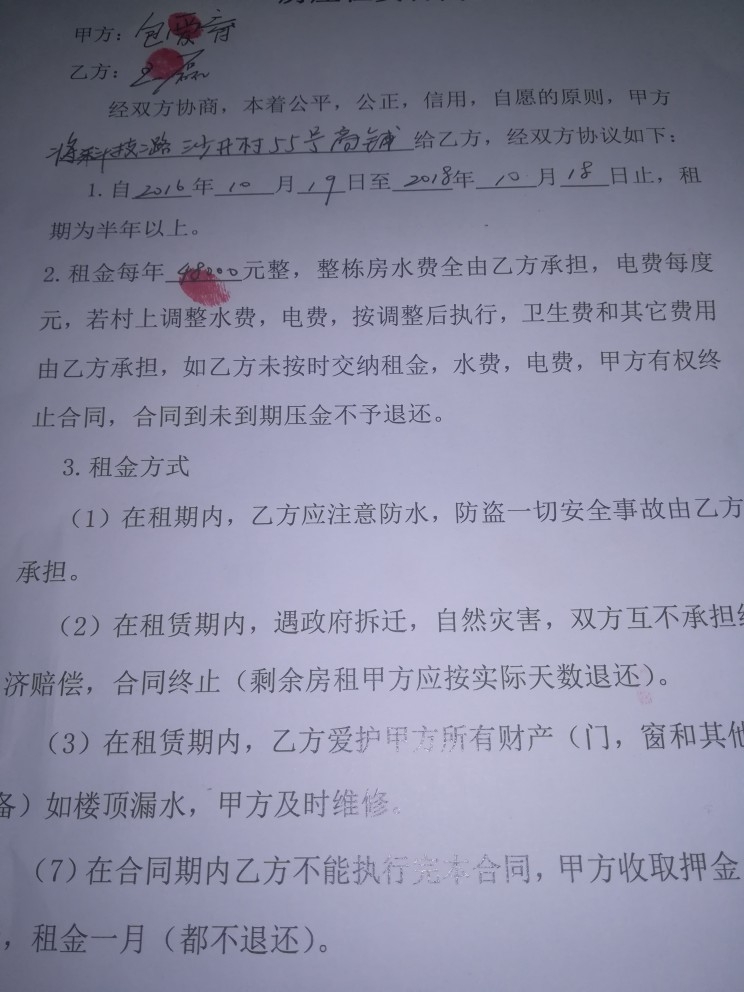 甲方：包爱
乙方：王磊
经双方协商，本着公平，公正，信用，自愿的原则，甲方
将科技路沙井村55号商铺给乙方，经双方协议如下：
1.自2016年10月19日至2018年10月18日止，租
期为半年以上。
2.租金每年48000元整，整栋房水费全由乙方承担，电费每度
元，若村上调整水费，电费，按调整后执行，卫生费和其它费用
由乙方承担，如乙方未按时交纳租金，水费，电费，甲方有权终
止合同，合同到未到期压金不予退还。
3.租金方式
（1）在租期内，乙方应注意防水，防盗一切安全事故由乙方
承担。
（2）在租赁期内，遇政府拆迁，自然灾害，双方互不承担经
济赔偿，合同终止（剩余房租甲方应按实际天数退还）。
（3）在租赁期内，乙方爱护甲方所有财产（门，窗和其他
备）如楼顶漏水，甲方及时维修。
（7）在合同期内乙方不能执行完本合同，甲方收取押金
，租金一月（都不退还）。